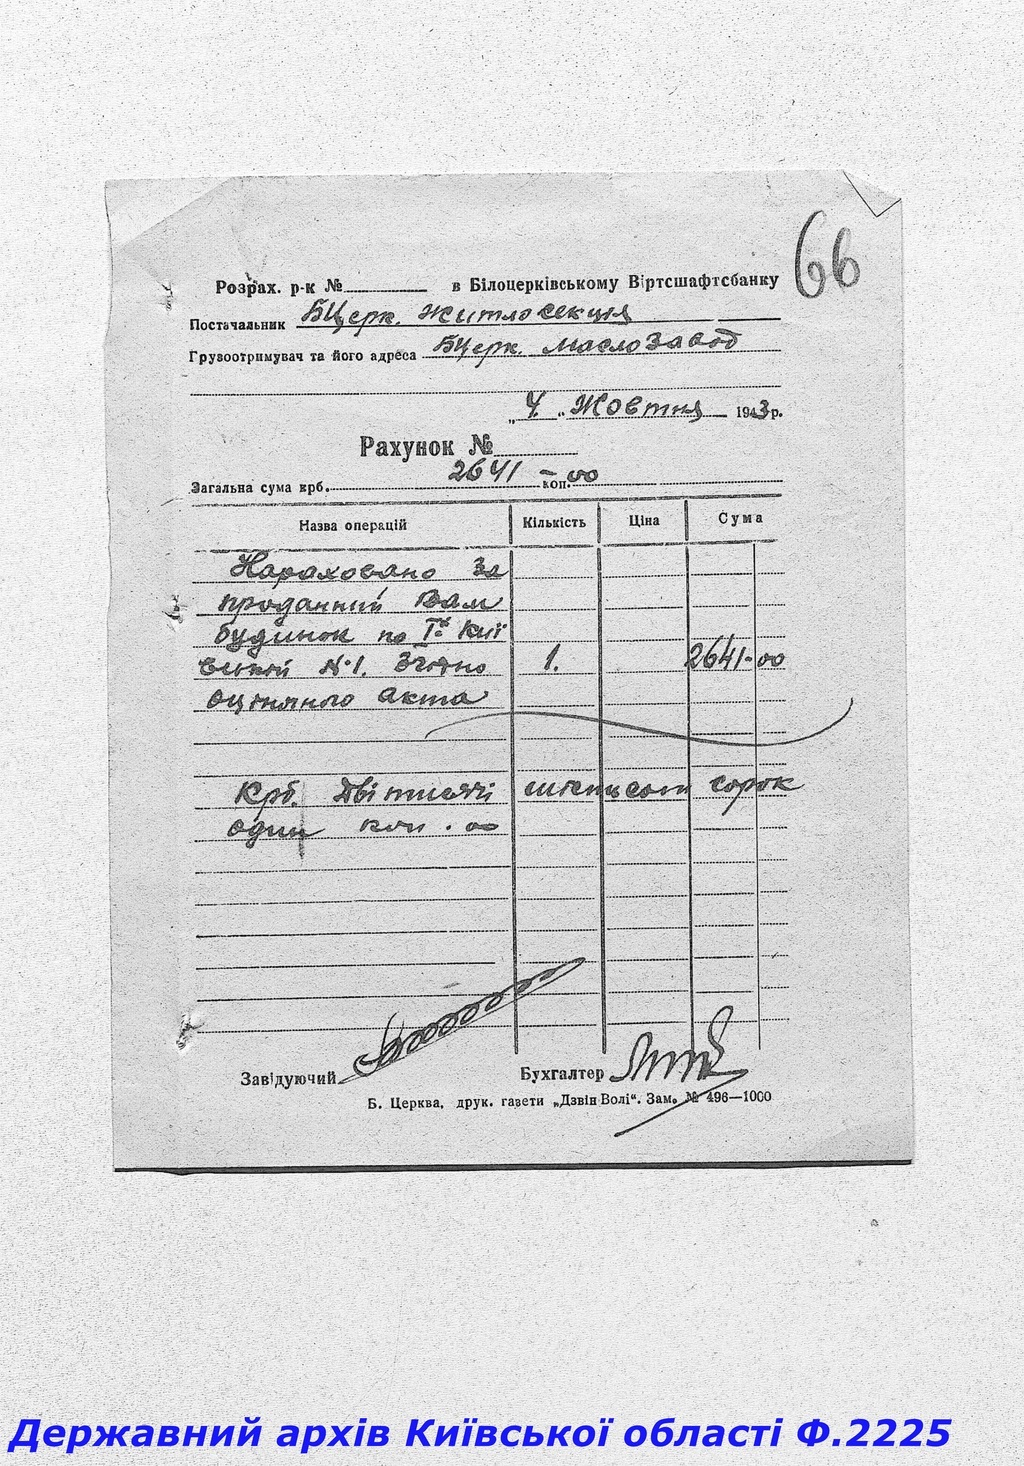 66
Розрах. р-к № в Білоцерківському Віртсшафтсбанку
Постачальник БЦерк. Житлосекція
Грузоотримувач та його адреса БЦерк. Маслозавод
„4." Жовтня 1943 р.
Рахунок №
Загальна сума крб. 2641 – коп. 00
Назва операцій Кількість Ціна Сума
Нараховано за
проданний Вам
будинок по Київ
ській №1. Згідно 1. 2641-00
оціночного акта
Крб. Дві тисячі шістьсот сорок
один коп. 00
Завідуючий Бухгалтер
Б. Церква, друк. газети „Дзвін Волі“. Зам. № 496—1000
Державний архів Київської області Ф.2225